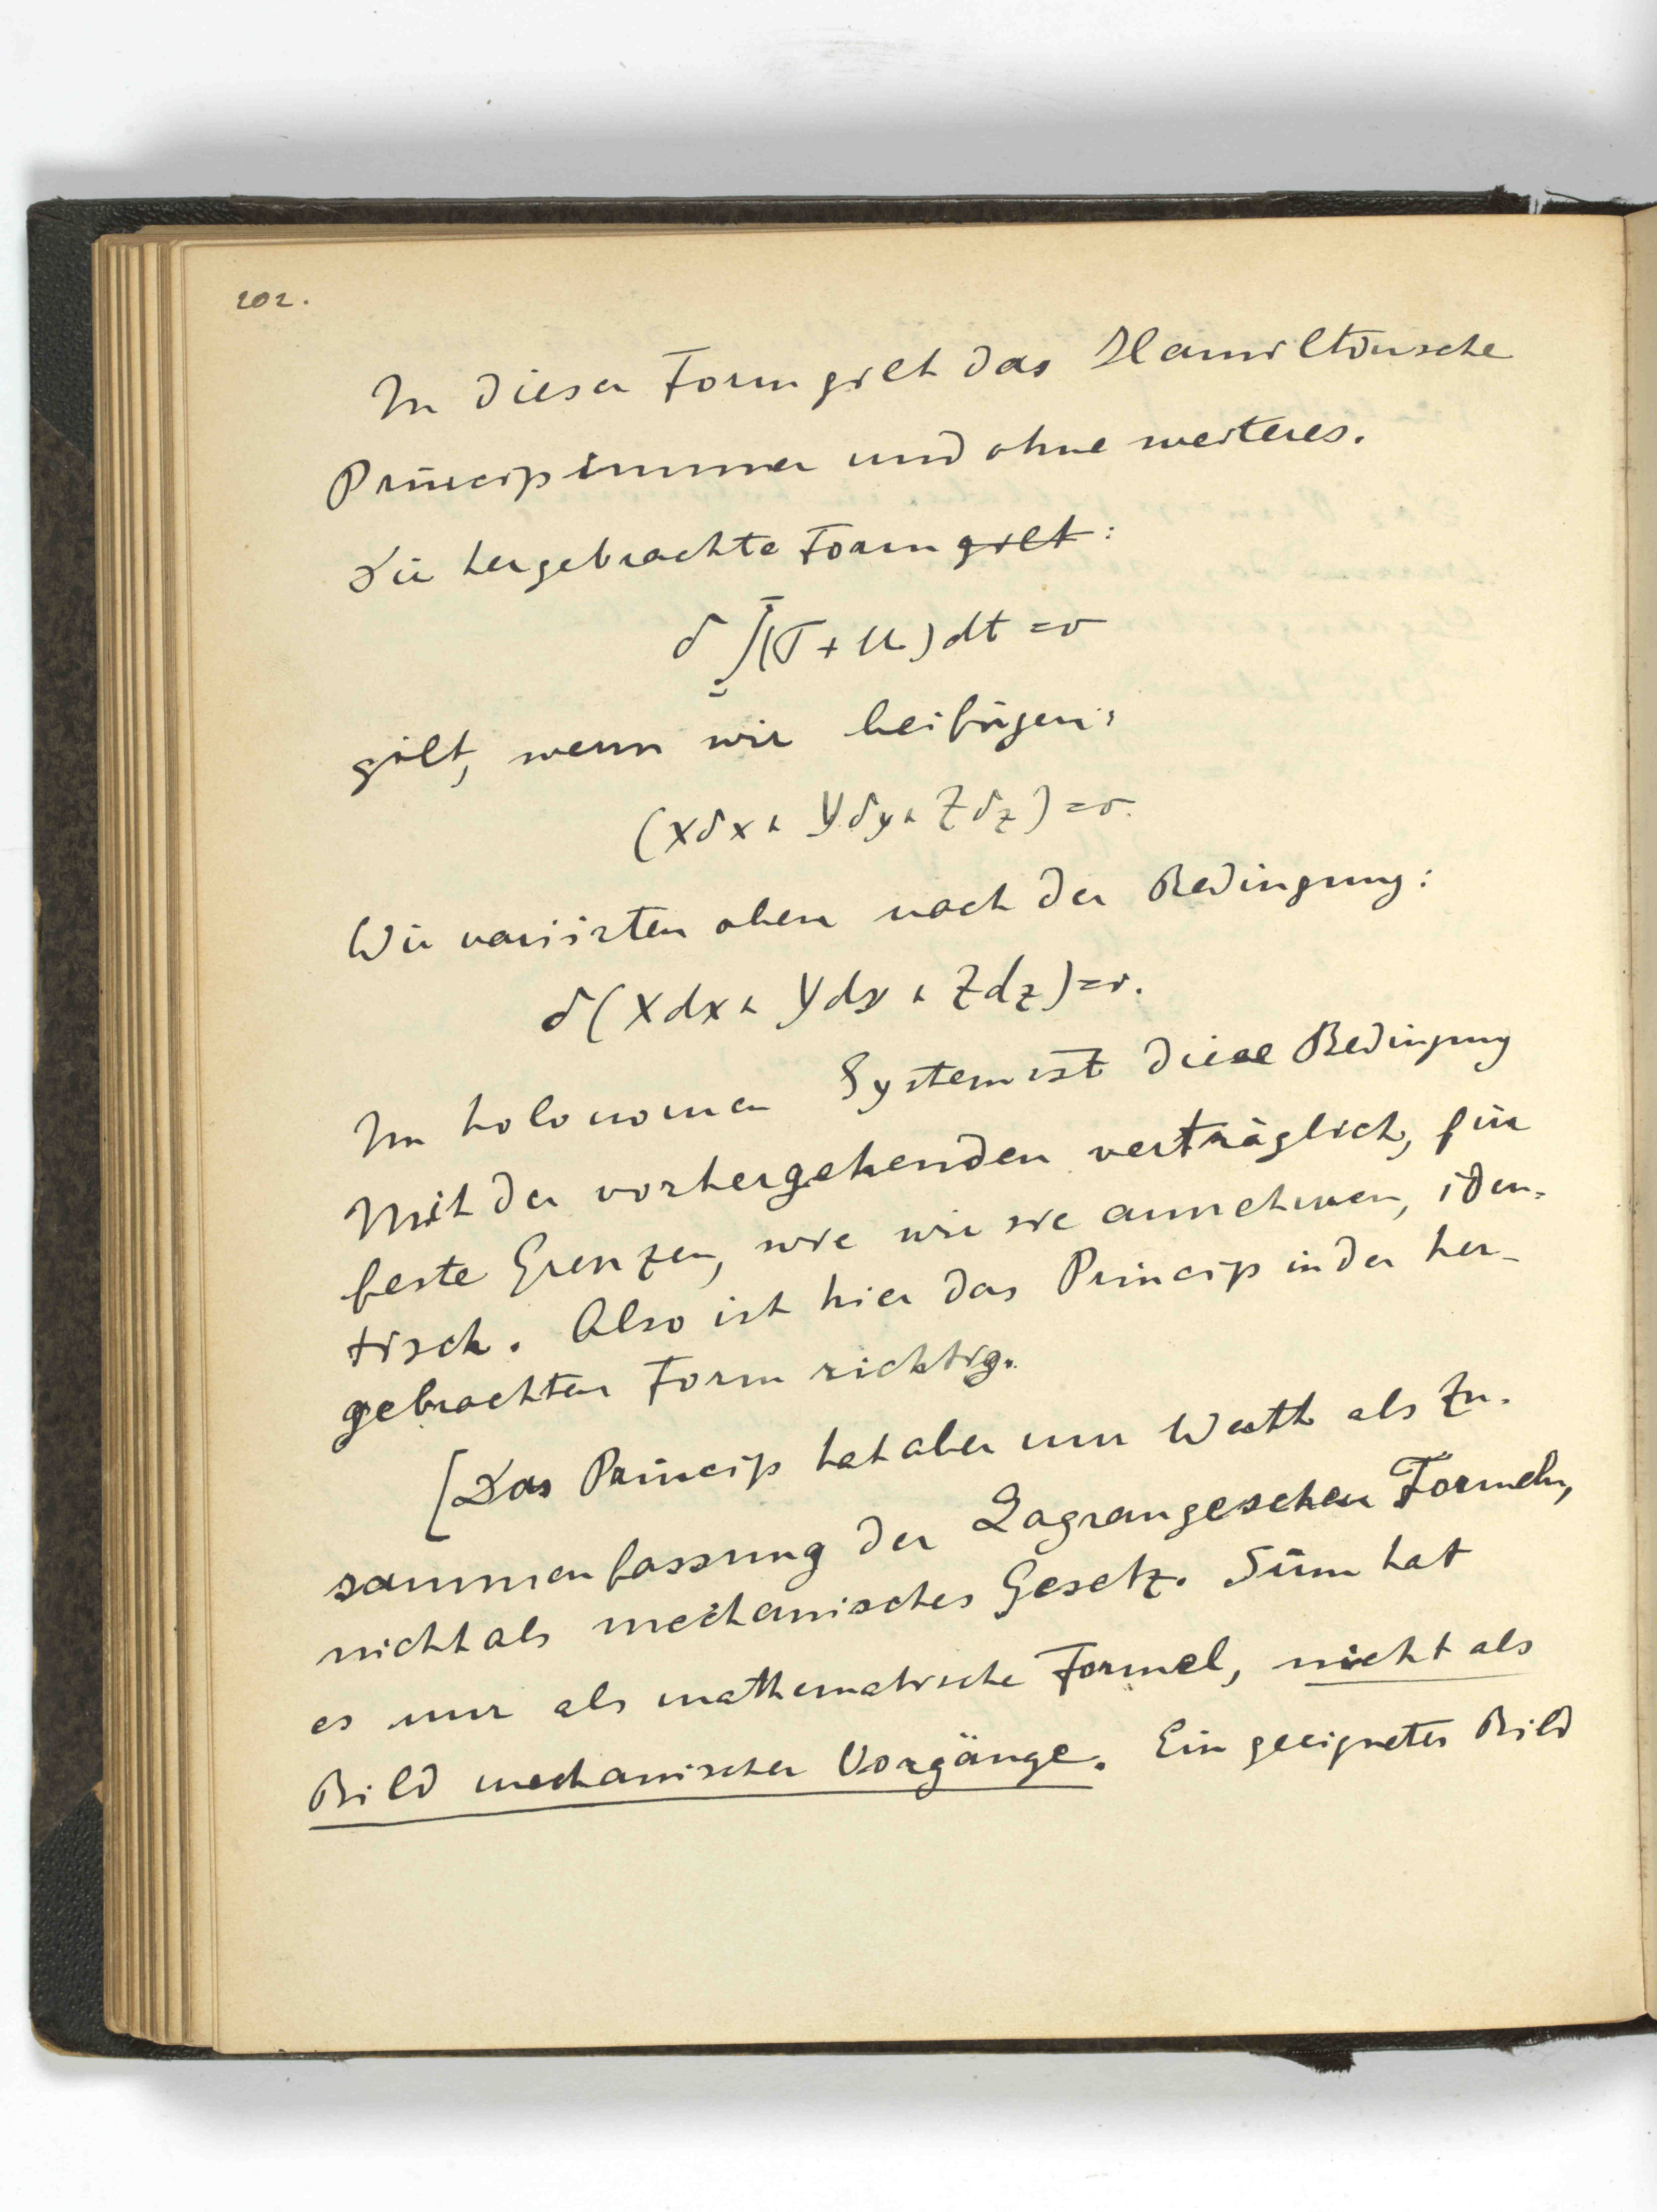 202.
In dieser Form gilt das Hamiltonsche
Princip immer und ohne weiteres.
Die hergebrachte Form gilt:
δ∫(T+U)dt=0
gilt, wenn wir beifügen:
(Xδx+Yδy+Zδz)=0.
Wir variirten oben nach der Bedingung:
δ(Xdx+Ydy+Zdz)=0.
Im holonomen System ist diese Bedingung
Mit der vorhergehenden verträglich, für
feste Grenzen, wie wir sie annehmen, iden-
tisch. Also ist hier das Princip in der her-
gebrachten Form richtig.
[Das Princip hat aber nur Werth als Zu-
sammenfassung der Lagrangeschen Formeln,
nicht als mechanisches Gesetz. Sinn hat
es nur als mathematische Formel, nicht als
Bild mechanischer Vorgänge. Ein geeignetes Bild